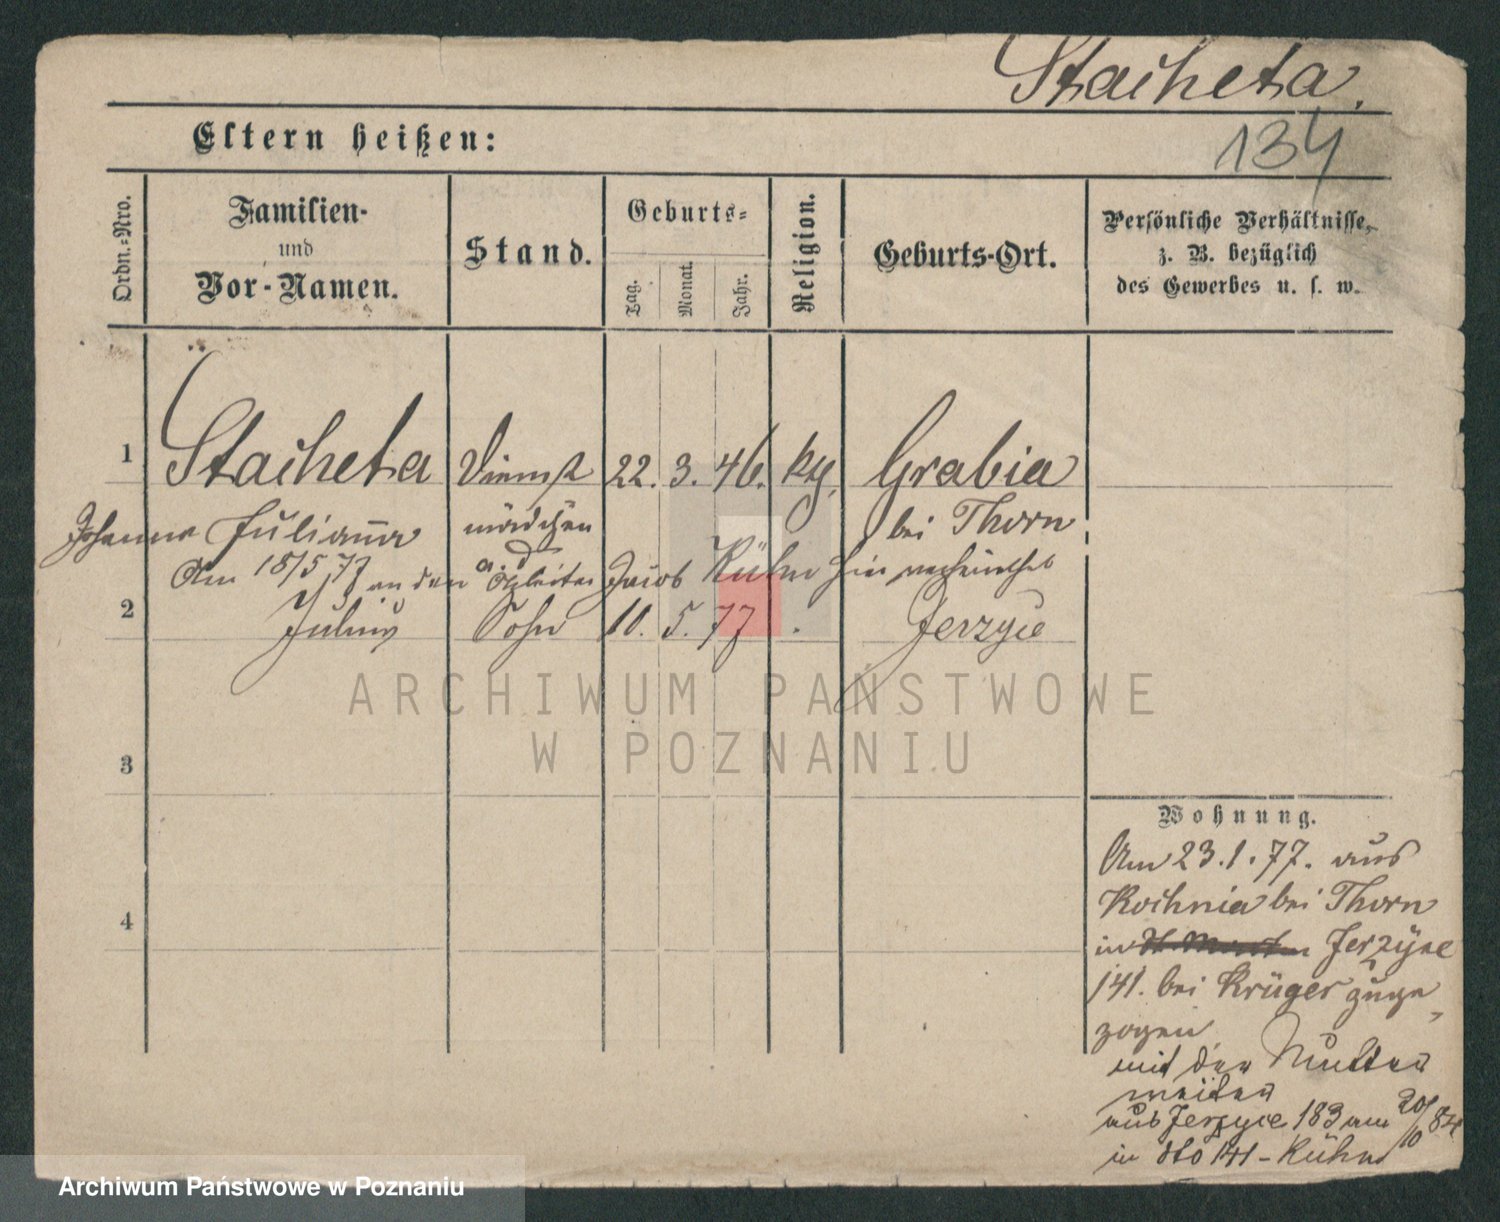 Stacheta.
134
Eltern heißen:
Ordn.-Nro.
Familien-
und
Vor-Namen.
Stand.
Geburts-
Tag.
Monat.
Jahr.
Religion.
Geburts-Ort.
Persönliche Verhältnisse,
z. B. bezüglich
des Gewerbes u. s. w.
1 Stacheta Dienst 22. 3. 46. kg. Grabia
Johanna Julianna mädchen bei Thorn
Am 18/5 77 an den Arbeiter Jacob Kühn hier verheirathet
2 Julius Sohn 10. 5. 77 . Jerzyce
ARCHIWUM PAŃSTWOWE
W POZNANIU
3
4
Wohnung.
Am 23.1.77. aus
Kochnia bei Thorn
in Jerzyce
141. bei Krüger zuge-
zogen
mit der Mutter
weiter
aus Jerzyce 183 am 20/10 84
in dto 141 - Kühn
Archiwum Państwowe w Poznaniu